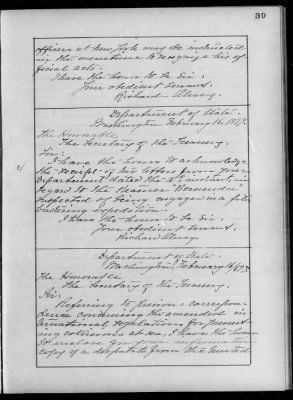 39
officer at New York may be instructed
in the meantime to recognize his of-
ficial acts.
I have the honor to be Sir,
Your obedient servant,
Richard Olney.
Department of State.
Washington, February 16, 1897.
The Honorable
The Secretary of the Treasury.
Sir:
I have the honor to acknowledge
the receipt of two letters from your
Department dated the instant in
regard to the steamer "Bermuda"
suspected of being engaged in a fili-
bustering expedition.
I have the honor to be Sir,
Your obedient servant,
Richard Olney.
Department of State.
Washington, February 16, 1897.
The Honorable
The Secretary of the Treasury.
Sir:
Referring to previous correspon-
dence concerning the amended in-
ternational regulations for prevent-
ing collisions at sea, I have the honor
to enclose for your information
copy of a despatch from the United